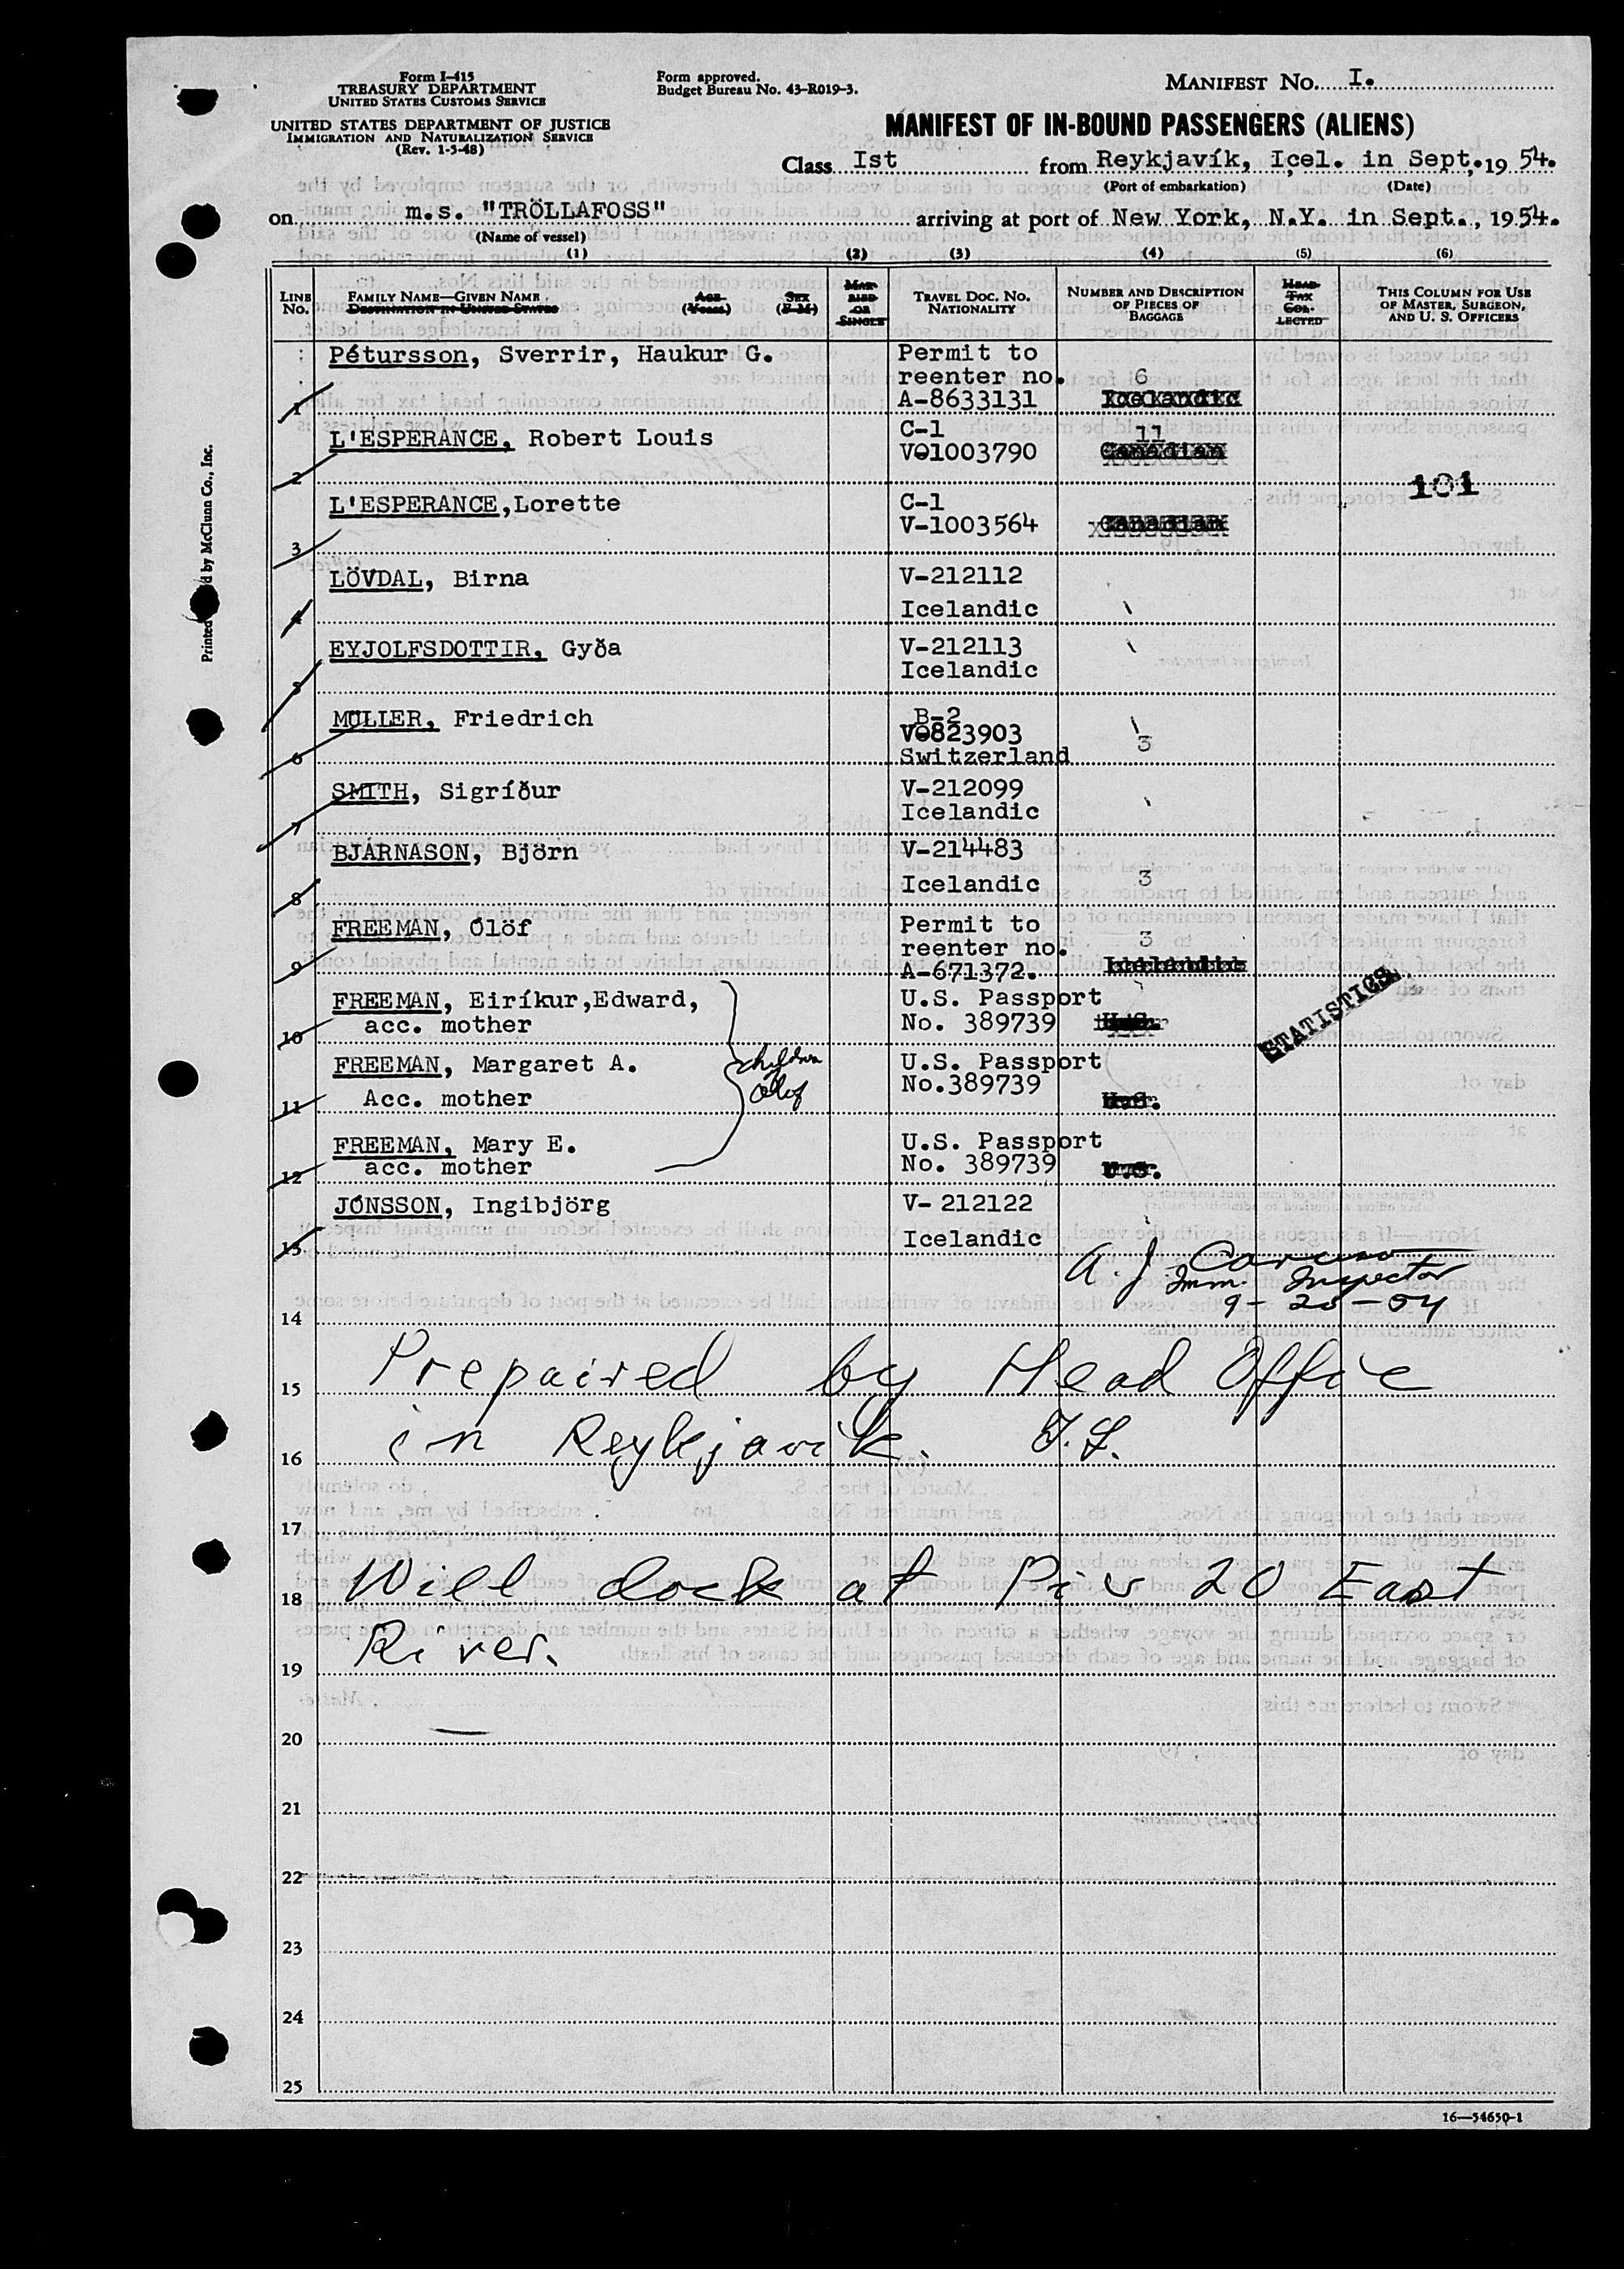 Form I-415
TREASURY DEPARTMENT
UNITED STATES CUSTOMS SERVICE
UNITED STATES DEPARTMENT OF JUSTICE
IMMIGRATION AND NATURALIZATION SERVICE
(Rev. 1-5-48)
Form approved.
Budget Bureau No. 43-R019-3.
MANIFEST No. I.
MANIFEST OF IN-BOUND PASSENGERS (ALIENS)
Class Ist from Reykjavík, Icel. in Sept. 19 54.
(Port of embarkation) (Date)
on m.s. "TRÖLLAFOSS" arriving at port of New York, N.Y. in Sept., 1954.
(Name of vessel)
(1) (2) (3) (4) (5) (6)
LINE No.
FAMILY NAME—GIVEN NAME
DESTINATION IN UNITED STATES
AGE (Years)
SEX (F-M)
MARRIED OR SINGLE
TRAVEL DOC. NO. NATIONALITY
NUMBER AND DESCRIPTION OF PIECES OF BAGGAGE
HEAD TAX COLLECTED
THIS COLUMN FOR USE OF MASTER, SURGEON, AND U. S. OFFICERS
Pétursson, Sverrir, Haukur G. Permit to
reenter no. 6
1 A-8633131 Icelandic
L'ESPERANCE, Robert Louis C-1 11
V01003790 Canadian
2
101
L'ESPERANCE,Lorette C-1
V-1003564 Canadian
3
LÖVDAL, Birna V-212112
4 Icelandic
EYJOLFSDOTTIR, Gyða V-212113
Icelandic
5
MULLER, Friedrich B-2
V0823903 3
6 Switzerland
SMITH, Sigríður V-212099
Icelandic
7
BJARNASON, Björn V-214483
8 Icelandic 3
FREEMAN, Ólöf Permit to
reenter no. 3
9 A-671372. Icelandic
STATISTICS
FREEMAN, Eiríkur,Edward, U.S. Passport
acc. mother No. 389739
10
children
Ólöf
FREEMAN, Margaret A. U.S. Passport
No.389739
11 Acc. mother U.S.
FREEMAN, Mary E. U.S. Passport
acc. mother No. 389739 U.S.
12
JÓNSSON, Ingibjörg V- 212122
13 Icelandic
A. J. Caruso
Imm. Inspector
9-20-54
14
15 Prepaired by Head Office
16 in Reykjavik. 
17
18 Will dock at Pier 20 East
19 River.
20
21
22
23
24
25
16—54650-1
Printed by McClunn Co., Inc.